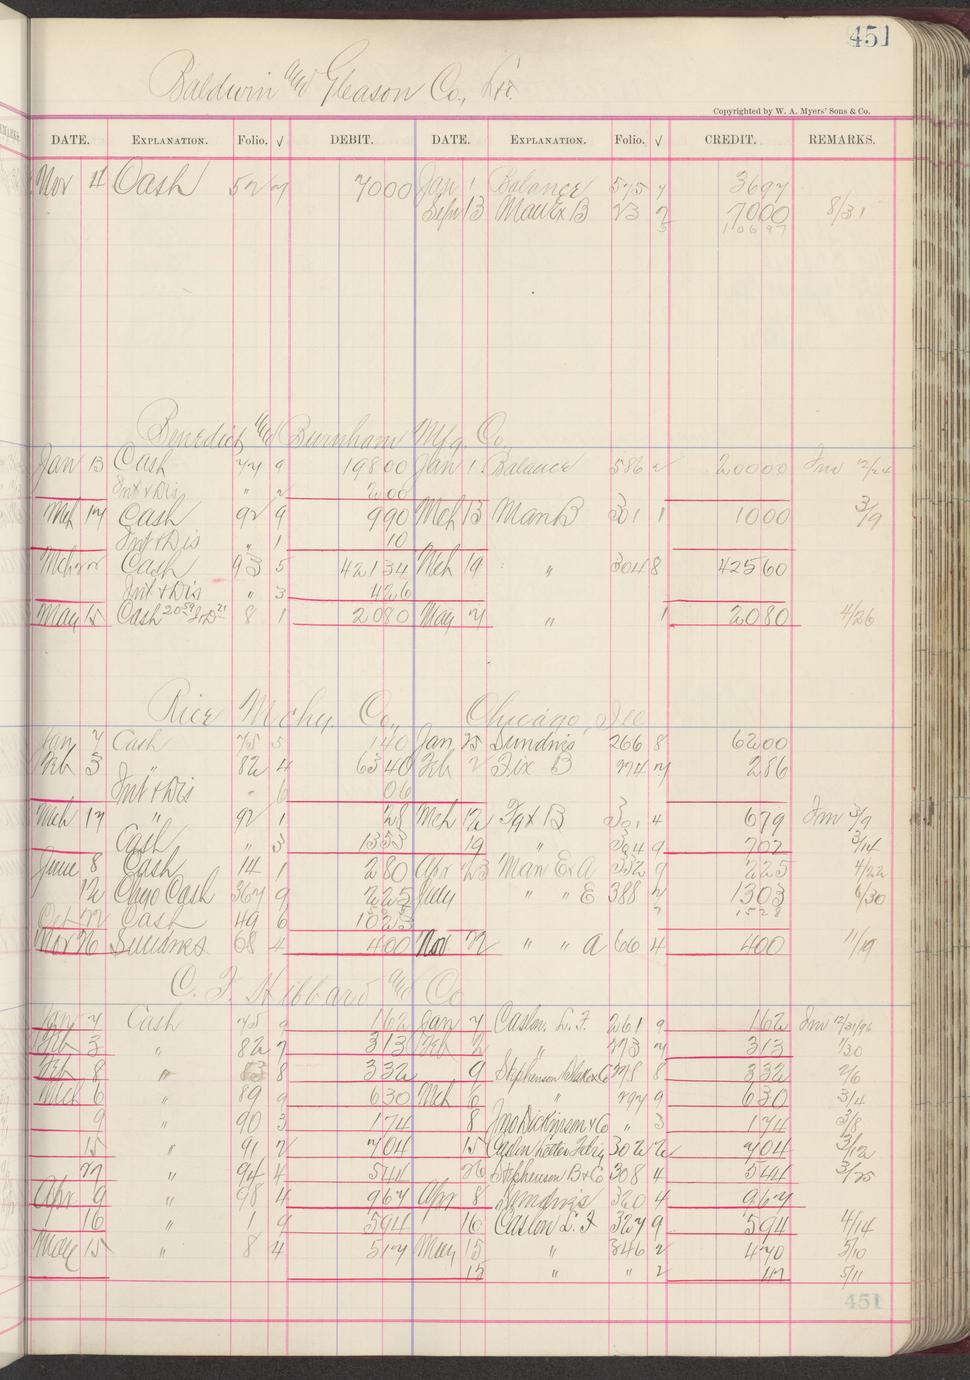 451
Baldwin and Gleason Co., Ltd.
Copyrighted by W. A. Myers' Sons & Co.
DATE. EXPLANATION. Folio. √ DEBIT. DATE. EXPLANATION. Folio. √ CREDIT. REMARKS.
Nov 4 Cash 52 7 7000 Jan 1 Balance 575 7 3697
Sep 13 Man Ex B 23 2 7000 8/31
10697
Benedict and Burnham Mfg. Co.
Jan 13 Cash 77 9 19800 Jan 1 Balance 586 2 20000 Inv 12/24
Int & Dis " 2 200
Mch 17 Cash 92 9 990 Mch 13 Man B 301 1 1000 3/9
Int & Dis " 1 10
Mch 22 Cash 93 5 42134 Mch 19 " 304 8 42560
Int & Dis " 3 426
May 15 Cash 20 59 Dis 21 8 1 2080 May 7 " 1 2080 4/26
Rice Mchy. Co., Chicago, Ill
Jan 7 Cash 75 5 140 Jan 25 Sundries 266 8 6200
Feb 3 " 82 4 6340 Feb 2 Fix B 274 7 286
Int & Dis " 6 06
Mch 17 " 92 1 28 Mch 12 Fgx B 301 4 679 Inv 3/9
Cash " 3 1353 19 " 304 9 702 3/14
June 8 Cash 14 1 280 Apr 23 Man Ex A 332 9 225 4/22
12 Ohio Cash 367 9 225 July " " E 388 2 1303 6/30
Oct 22 Cash 49 6 1023 1528
Nov 26 Sundries 68 4 400 Nov 22 " " A 66 4 400 11/19
C. F. Hibbard and Co
Jan 7 Cash 75 9 162 Jan 7 Caslon L. F. 261 9 162 Inv 12/31/96
Feb 3 " 82 7 313 Feb 2 " 273 7 313 1/30
Feb 8 " 83 8 332 9 Stephenson Blake & Co 278 8 332 2/6
Mch 6 " 89 9 630 Mch 6 " 297 9 630 3/4
9 " 90 3 174 8 Jno Dickinson & Co " 3 174 3/8
15 " 91 2 704 15 Caslon Letter Fdry 302 2 704 3/12
27 " 94 4 544 26 Stephenson B & Co 308 4 544 3/25
Apr 9 " 98 4 967 Apr 8 Sundries 320 4 967
16 " 1 9 594 16 Caslon L. F 327 9 594 4/14
May 15 " 8 4 517 May 15 " 346 2 470 5/10
15 " " 2 47 5/11
451